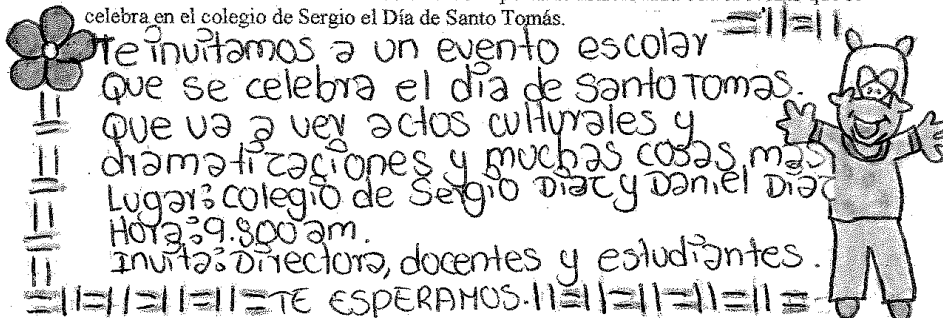 celebra en el colegio de Sergio el Día de Santo Tomás.
Te invitamos a un evento escolar
Que se celebra el dia de Santo Tomas.
Que va a ver actos culturales y
dramatizaciones y muchas cosas mas
Lugar: colegio de Sergio Diaz y Daniel Diaz
Hora: 9:800 am.
Invita: Directora, docentes y estudiantes.
TE ESPERAMOS.